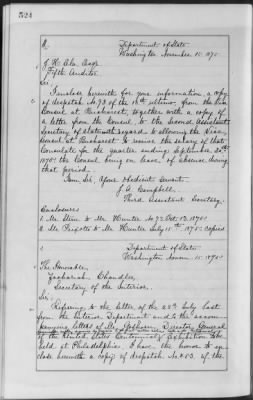 524
Department of State
Washington November 15, 1875.
Fifth Auditor
Sir:
I enclose herewith for your information a copy
of despatch No. 73 of the 13th ultimo, from the Vice
Consul at Bucharest, together with a copy of
a letter from the Consul, to the Second Assistant
Secretary of State with regard to allowing the Vice
Consul at Bucharest to receive the salary of that
Consulate for the quarter ending September 30th
1875: the Consul being on leave of absence during
that period.
I am Sir, Your Obedient Servant.
J. A. Campbell.
Third Assistant Secretary.
Enclosures
1. Mr. to Mr. Hunter No. 72 Oct. 13, 1875.
2. Mr. to Mr. Hunter July 15th 1875. copied
Department of State
Washington Novem. 15, 1875.
The Honorable,
Zachariah Chandler,
Secretary of the Interior.
Sir:
Referring to the letter of the 28th July last
from the Interior Department and to the accom-
panying letters of Mr. Goshorn Director General
of the United States Centennial Exhibition to be
held at Philadelphia, I have the honor to en-
close herewith a copy of despatch No. 83. of the